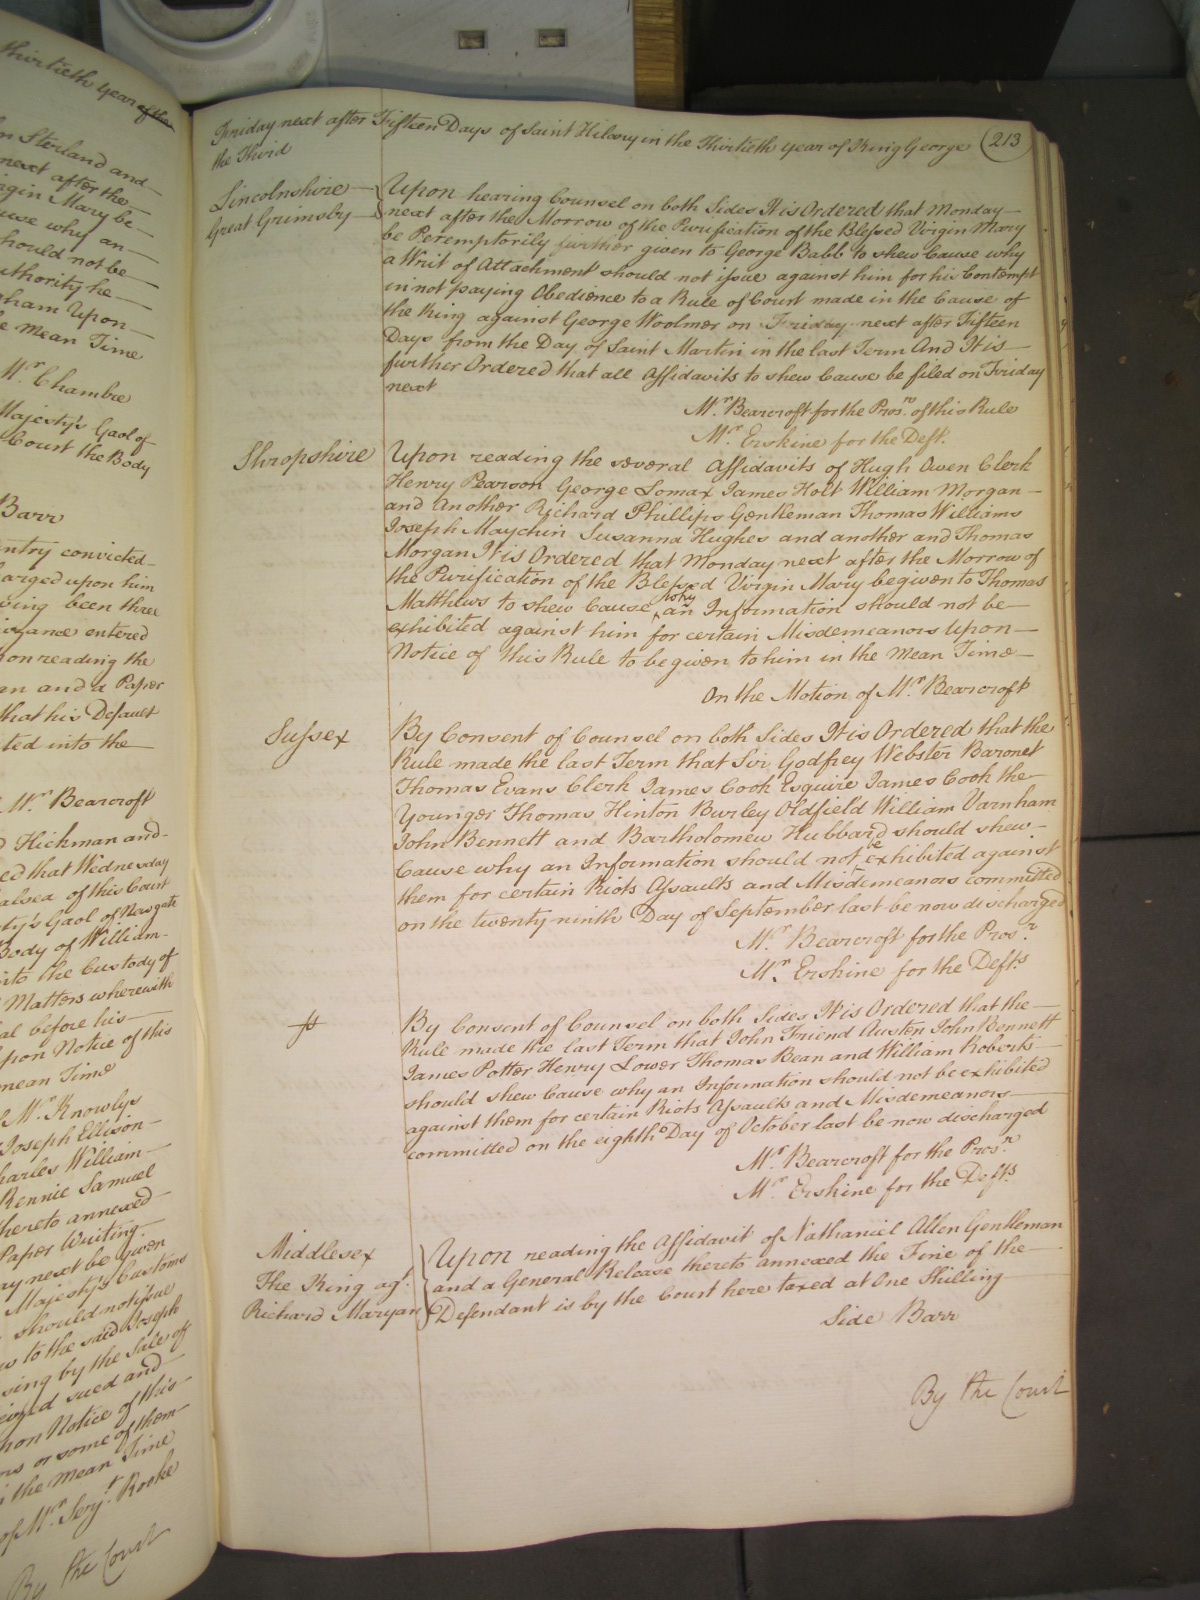 thirtieth year of the
n Sterland and
next after the
irgin Mary be
use why an
hould not be
uthority he
gham Upon
e mean Time
Mr. Chambre
Majesty's Gaol of
Court the Body
Barr
ntry convicted
arged upon him
ving been three
izance entered
on reading the
an and a Paper
that his Default
ted into the
Mr. Bearcroft
d Hickman and
ed that Wednesday
alsea of this Court
ty's Gaol of Newgate
Body of William
into the Custody of
Matters wherewith
al before his
pon Notice of this
mean Time
& Mr. Knowlys
Joseph Ellison
harles William
Rennie Samuel
hereto annexed
Paper Writing
ry next be given
Majesty's Customs
should not issue
us to the said Joseph
sing by the Sale of
sued and
pon Notice of this
ns or some of them
the mean Time
of Mr. Serjt. Rooke
By the Court
Friday next after Fifteen Days of Saint Hilary in the Thirtieth year of King George 213
the Third
Lincolnshire
Great Grimsby
Upon hearing Counsel on both Sides It is Ordered that Monday
next after the Morrow of the Purification of the Blessed Virgin Mary
be Peremptorily further given to George Babb to shew Cause why
a Writ of Attachment should not issue against him for his Contempt
in not paying Obedience to a Rule of Court made in the Cause of
the King against George Woolmer on Friday next after Fifteen
Days from the Day of Saint Martin in the last Term And It is
further Ordered that all Affidavits to shew Cause be filed on Friday
next
Mr. Bearcroft for the Prosr. of this Rule
Mr. Erskine for the Deft.
Shropshire
Upon reading the several Affidavits of Hugh Owen Clerk
Henry Pearson George Lomax James Holt William Morgan
and Another Richard Phillips Gentleman Thomas Williams
Joseph Maychin Susanna Hughes and another and Thomas
Morgan It is Ordered that Monday next after the Morrow of
the Purification of the Blessed Virgin Mary be given to Thomas
Matthews to shew Cause why an Information should not be
exhibited against him for certain Misdemeanors Upon
Notice of this Rule to be given to him in the Mean Time
On the Motion of Mr. Bearcroft
Sussex
By Consent of Counsel on both Sides It is Ordered that the
Rule made the last Term that Sir Godfrey Webster Baronet
Thomas Evans Clerk James Cook Esquire James Cook the
Younger Thomas Hinton Burley Oldfield William Varnham
John Bennett and Bartholomew Hubbard should shew
Cause why an Information should not be exhibited against
them for certain Riots Assaults and Misdemeanors committed
on the twenty ninth Day of September last be now discharged
Mr. Bearcroft for the Prosr.
Mr. Erskine for the Defts.
ss
By Consent of Counsel on both Sides It is Ordered that the
Rule made the last Term that John Friend Austen John Bennett
James Potter Henry Lower Thomas Bean and William Roberts
should shew Cause why an Information should not be exhibited
against them for certain Riots Assaults and Misdemeanors
committed on the eighth Day of October last be now discharged
Mr. Bearcroft for the Prosr.
Mr. Erskine for the Defts.
Middlesex
The King agt.
Richard Maryan
Upon reading the Affidavit of Nathaniel Allen Gentleman
and a General Release thereto annexed the Fine of the
Defendant is by the Court here taxed at One Shilling
Side Barr
By the Court